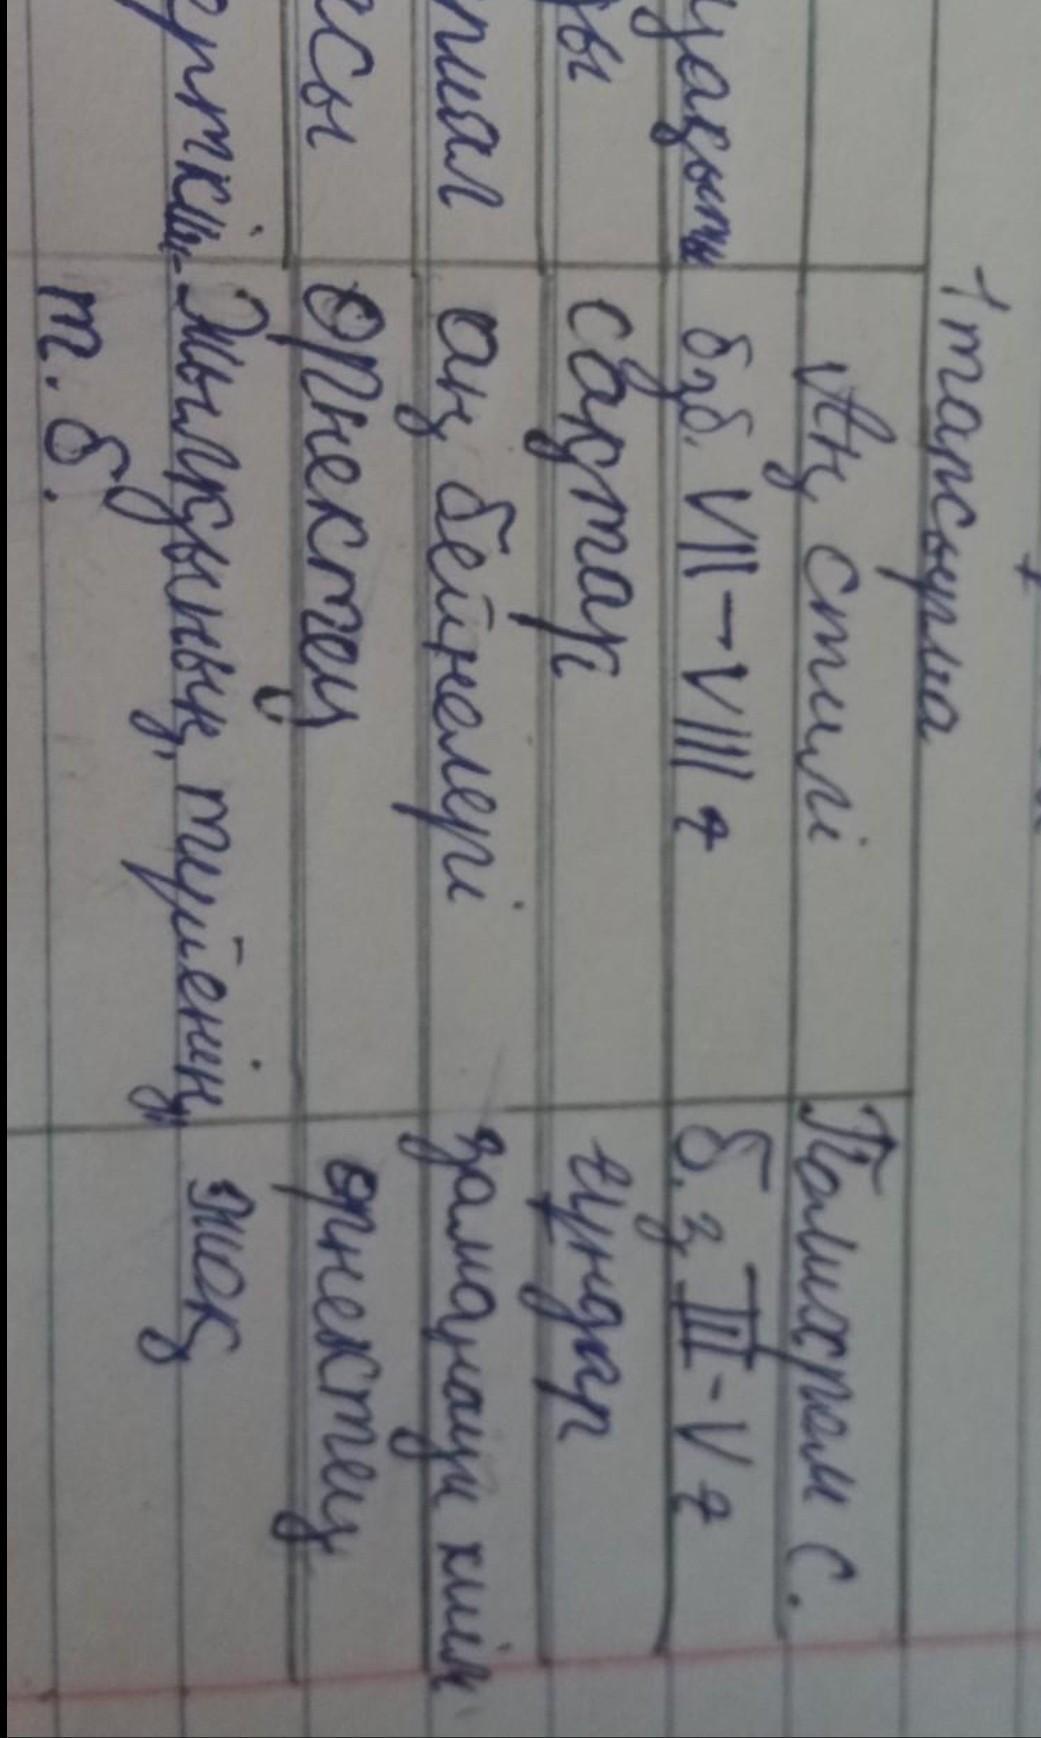 1 тапсырма
Аң стилі Полихром С.
уақыты бзб. VII-VIII ғ б.з III-V ғ
ры сақтар ғұндар
риал аң бейнелері замануи киім
сы өрнектеу өрнектеу
Жылқының, түйенің, жоқ
т. б.